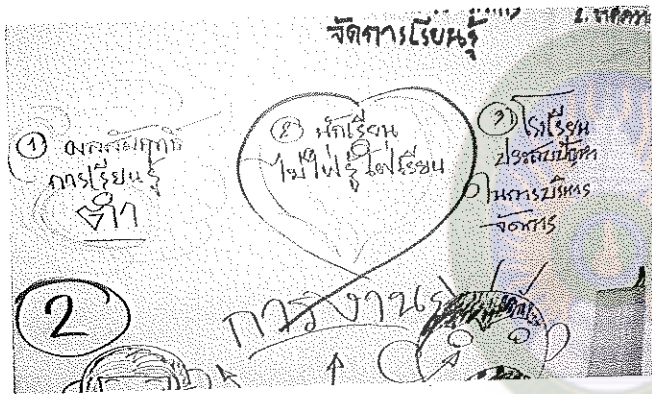 จัดการเรียนรู้
① ผลสัมฤทธิ์
การเรียนรู้
ต่ำ
② นักเรียน
ไม่ใฝ่รู้ใฝ่เรียน
③ โรงเรียน
ประสบปัญหา
ในการบริหาร
จัดการ
2